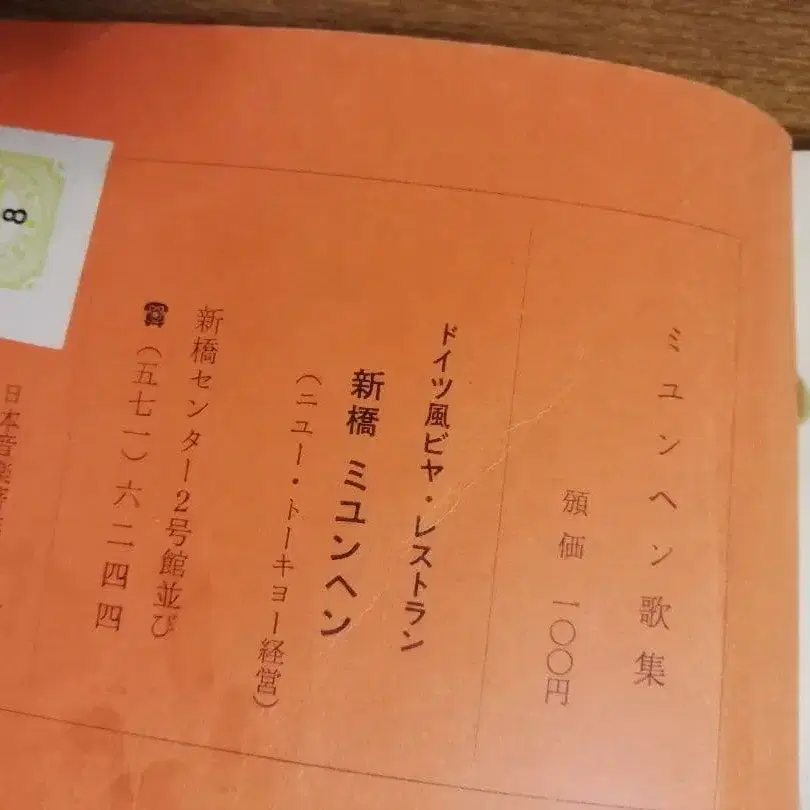 ミユンヘン歌集
頒価 一〇〇円
ドイツ風ビヤ・レストラン
新橋 ミユンヘン
(ニュー・トーキョー経営)
新橋センター2号館並び
☎(五七一)六二四四
日本音楽
8